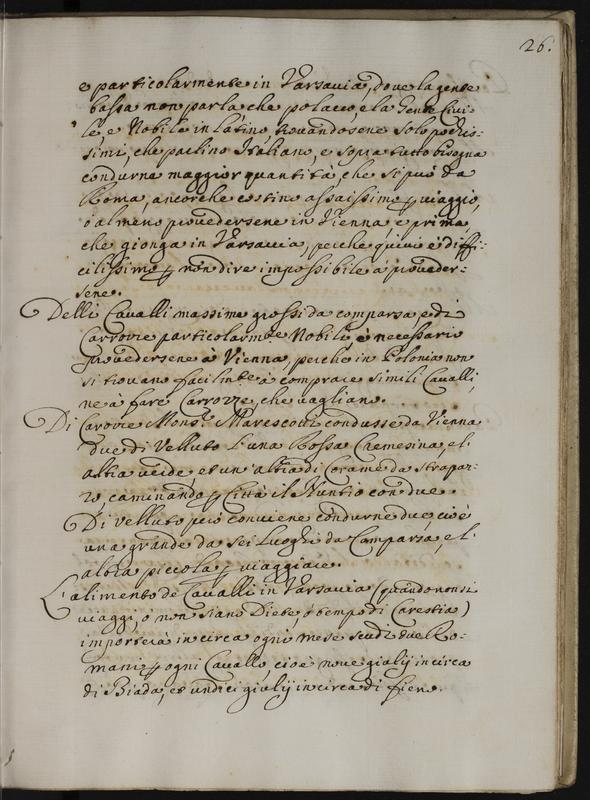 26.
e particolarmente in Varsavia, dove la gente
bassa non parla che polacco, e la Gente Civi-
le, e Nobile in latino, trovandosene solo pochis-
simi, che parlino Italiano, e sopra tutto bisogna
condurne maggior quantità, che si può da
Roma, ancorche costino assaissimo p viaggio,
ò almeno provedersene in Vienna, e prima
che gionga in Varsavia, perche quivi è diffi-
cilissimo p non dire impossibile à proveder-
sene.
Delli Cavalli massime grossi da comparsa, e di
Carrozze particolarmte Nobili è necessario
provedersene à Vienna, perche in Polonia non
si trovano facilmte à comprare simili Cavalli,
ne à fare Carrozze, che vagliano.
Di Carozze Monsr Marescotti condusse da Vienna
due di Velluto L'una Rossa Cremesina, e l'
altra verde, et un'altra di Corame da strapaz-
zo, caminando p Città il Nuntio con due.
Di velluto però conviene condurne due, cioè
una grande da sei Luoghi da Comparsa, e l'
altra piccola p viaggiare.
L'alimento de Cavalli in Varsavia (quando non si
viaggi, ò non siano Diete, ò tempo di Carestia)
importerà in circa ogni mese scudi due Ro-
mani p ogni Cavallo, cioè nove giulij in circa
di Biada, et undici giulij in circa di fieno.